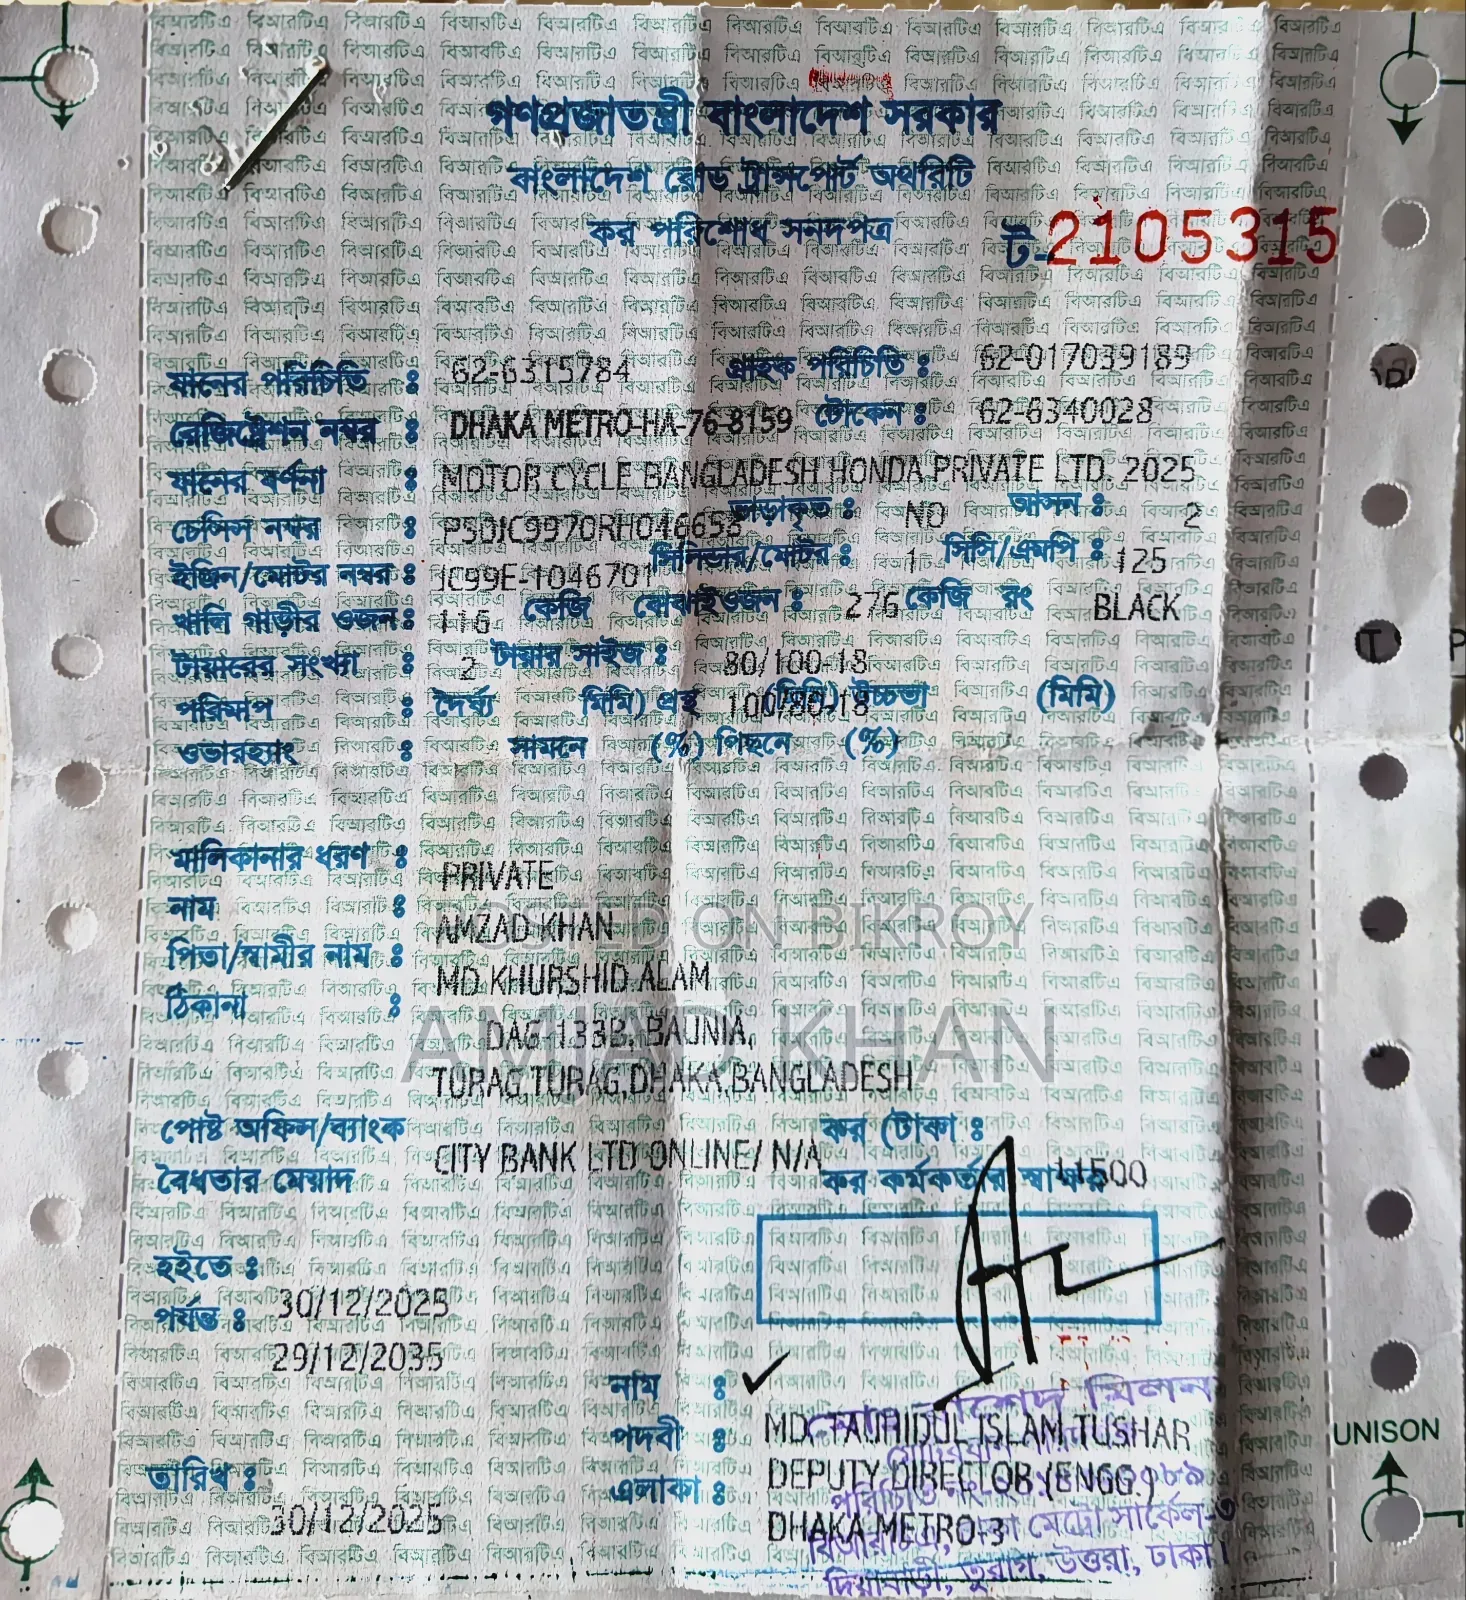 গণপ্রজাতন্ত্রী বাংলাদেশ সরকার
বাংলাদেশ রোড ট্রান্সপোর্ট অথরিটি
কর পরিশোধ সনদপত্র
ট-2105315
যানের পরিচিতি : 62-6315784 গ্রাহক পরিচিতি : 62-017039189
রেজিস্ট্রেশন নম্বর : DHAKA METRO-HA-76-8159 টোকেন : 62-6340028
যানের বর্ণনা : MOTOR CYCLE BANGLADESH HONDA PRIVATE LTD. 2025
চেসিস নম্বর : ভাড়াকৃত : NO আসন : 2
ইঞ্জিন/মোটর নম্বর : JC99E-1046701 সিলিন্ডার/মোটর : 1 সিসি/এমপি : 125
খালি গাড়ীর ওজন : 116 কেজি বোঝাইওজন : 276 কেজি রং BLACK
টায়ারের সংখ্যা : 2 টায়ার সাইজ : 80/100-18
পরিমাপ : দৈর্ঘ্য মিমি) প্রস্থ 100/80-18 (মিমি) উচ্চতা (মিমি)
ওভারহ্যাং : সামনে (%) পিছনে (%)
মালিকানার ধরণ : PRIVATE
নাম : AMZAD KHAN
POSTED ON BIKROY
পিতা/স্বামীর নাম : MD KHURSHID ALAM
ঠিকানা : DAG-133B, BAUNIA,
AMJAD KHAN
TURAG,TURAG,DHAKA,BANGLADESH
পোষ্ট অফিস/ব্যাংক CITY BANK LTD ONLINE/ N/A কর (টাকা : 11500
বৈধতার মেয়াদ কর কর্মকর্তার স্বাক্ষর
হইতে : 30/12/2025
পর্যন্ত : 29/12/2035
নাম : MD. TAUHIDUL ISLAM TUSHAR
পদবী : DEPUTY DIRECTOR (ENGG.)
তারিখ : 30/12/2025
এলাকা : DHAKA METRO-3
মিলন
মেট্রো সার্কেল-৩
দিয়াবাড়ী, তুরাগ, উত্তরা, ঢাকা।
UNISON